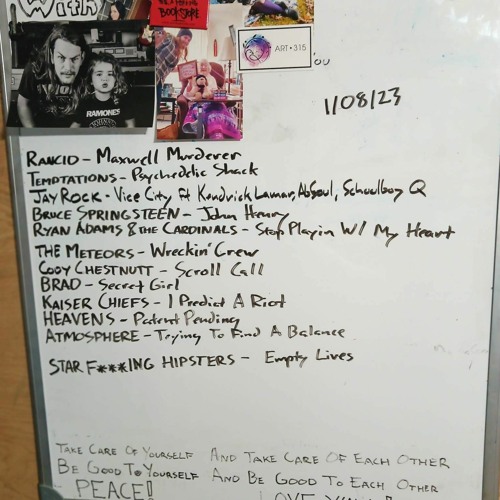 With
BOOKSTORE
ART•315
RAMONES
1/08/23
RANCID - MAXWELL MURDERER
TEMPTATIONS - Psychedelic Shack
JAY ROCK - Vice City ft Kendrick Lamar, AbSoul, Schoolboy Q
BRUCE SPRINGSTEEN - John Henry
RYAN ADAMS & THE CARDINALS - Stop Playin W/ My Heart
THE METEORS - Wreckin' Crew
CODY CHESTNUTT - Scroll Call
BRAD - Secret Girl
KAISER CHIEFS - I Predict A Riot
HEAVENS - Patent Pending
ATMOSPHERE - Trying To Find A Balance
STAR F***ING HIPSTERS - Empty Lives
TAKE CARE OF YOURSELF AND TAKE CARE OF EACH OTHER
BE GOOD TO YOURSELF AND BE GOOD TO EACH OTHER
PEACE!